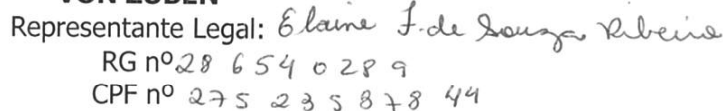 Representante Legal: Elaine F. de Souza Ribeiro
RG nº 28 654 0 28 9
CPF nº 275 235 878 44